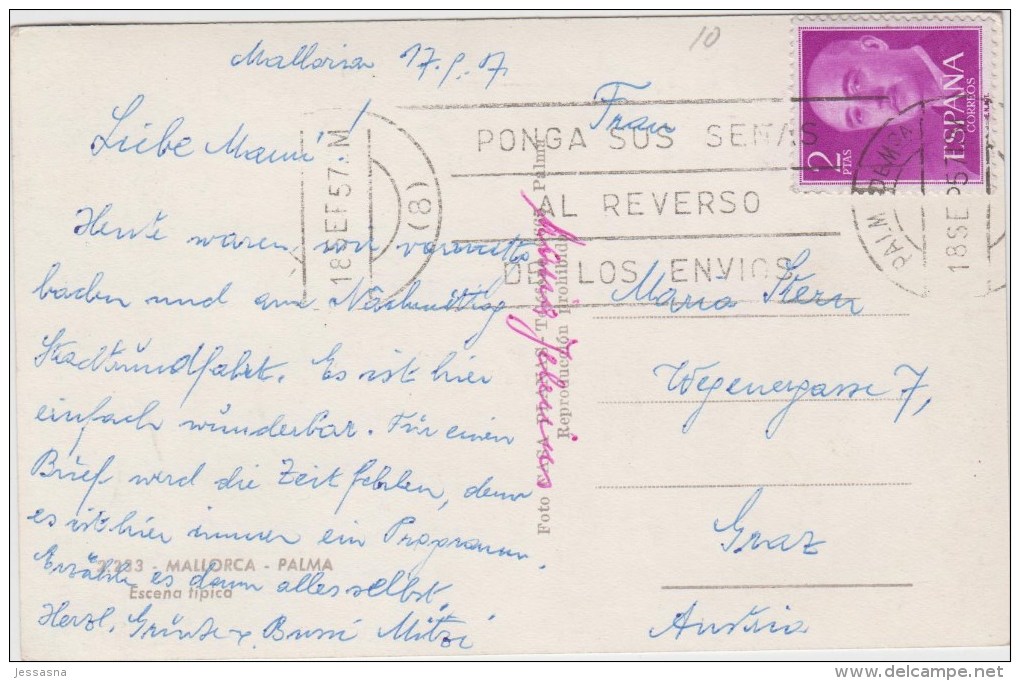 10
Mallorca 17.9.57
Liebe Mami!
Heute waren wir vormittg
baden und am Nachmittag
Stadtrundfahrt. Es ist hier
einfach wunderbar. Für einen
Brief wird die Zeit fehlen, denn
es ist hier immer ein Programm.
Erzähle es dann alles selbst.
Herzl. Grüsse x Bussi Mitzi
2.233 - MALLORCA - PALMA
Escena típica
18 SET 57. M
(8)
PONGA SUS SEÑAS
AL REVERSO
DE LOS ENVIOS
Foto CASA PLANAS Palma
Reproducción Prohibida
Frau
Maria Stern
Wegenergasse 7,
Graz
Austria
2 PTAS
ESPAÑA
CORREOS
PALM DE MCA
18 SEP 57
jessasna
www.delcampe.net